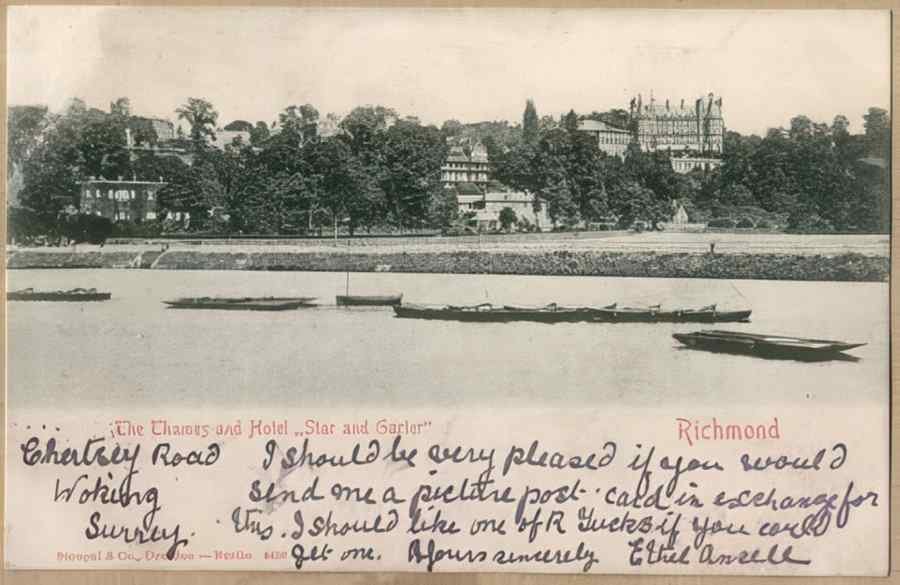 The Thames and Hotel „Star and Garter"
Richmond
Chertsey Road
Woking
Surrey.
I should be very pleased if you would
send me a picture post-card in exchange for
this. I should like one of R Tucks if you could
get one. Yours sincerely Ethel Ansell
Stengel & Co., Dresden — Berlin